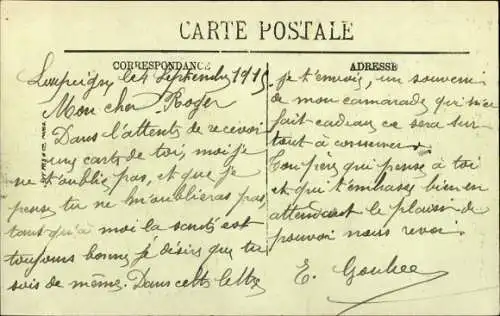 CARTE POSTALE
CORRESPONDANCE
le 4 Septembre 1915
Mon cher Roger
Dans l'attente de recevoir
une carte de toi, moi je
ne t'oublie pas, et que je
pense tu ne m'oublieras pas,
tant qu'à moi la santé est
toujours bonne je désire que tu
sois de même. Dans cette lettre
ADRESSE
je t'envoie, un souvenir
de mon camarade qui m'en
fait cadeau ce sera sur
tout à conserver.
Ton père qui pense à toi
et qui t'embrasse bien en
attendant le plaisir de
pouvoir nous revoir.
E.